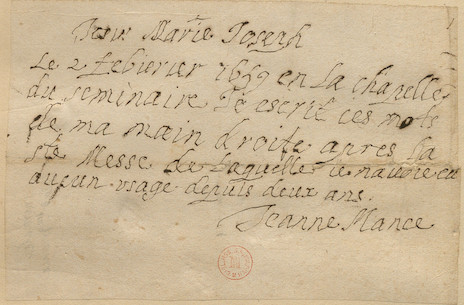 Jesus Marie Joseph
Le 2 febverier 1659 en la chapelle
du seminaire Je escrit ces mots
de ma main droite apres la
ste Messe de laquelle ie navoie eu
aucun usage depuis deux ans.
Jeanne Mance